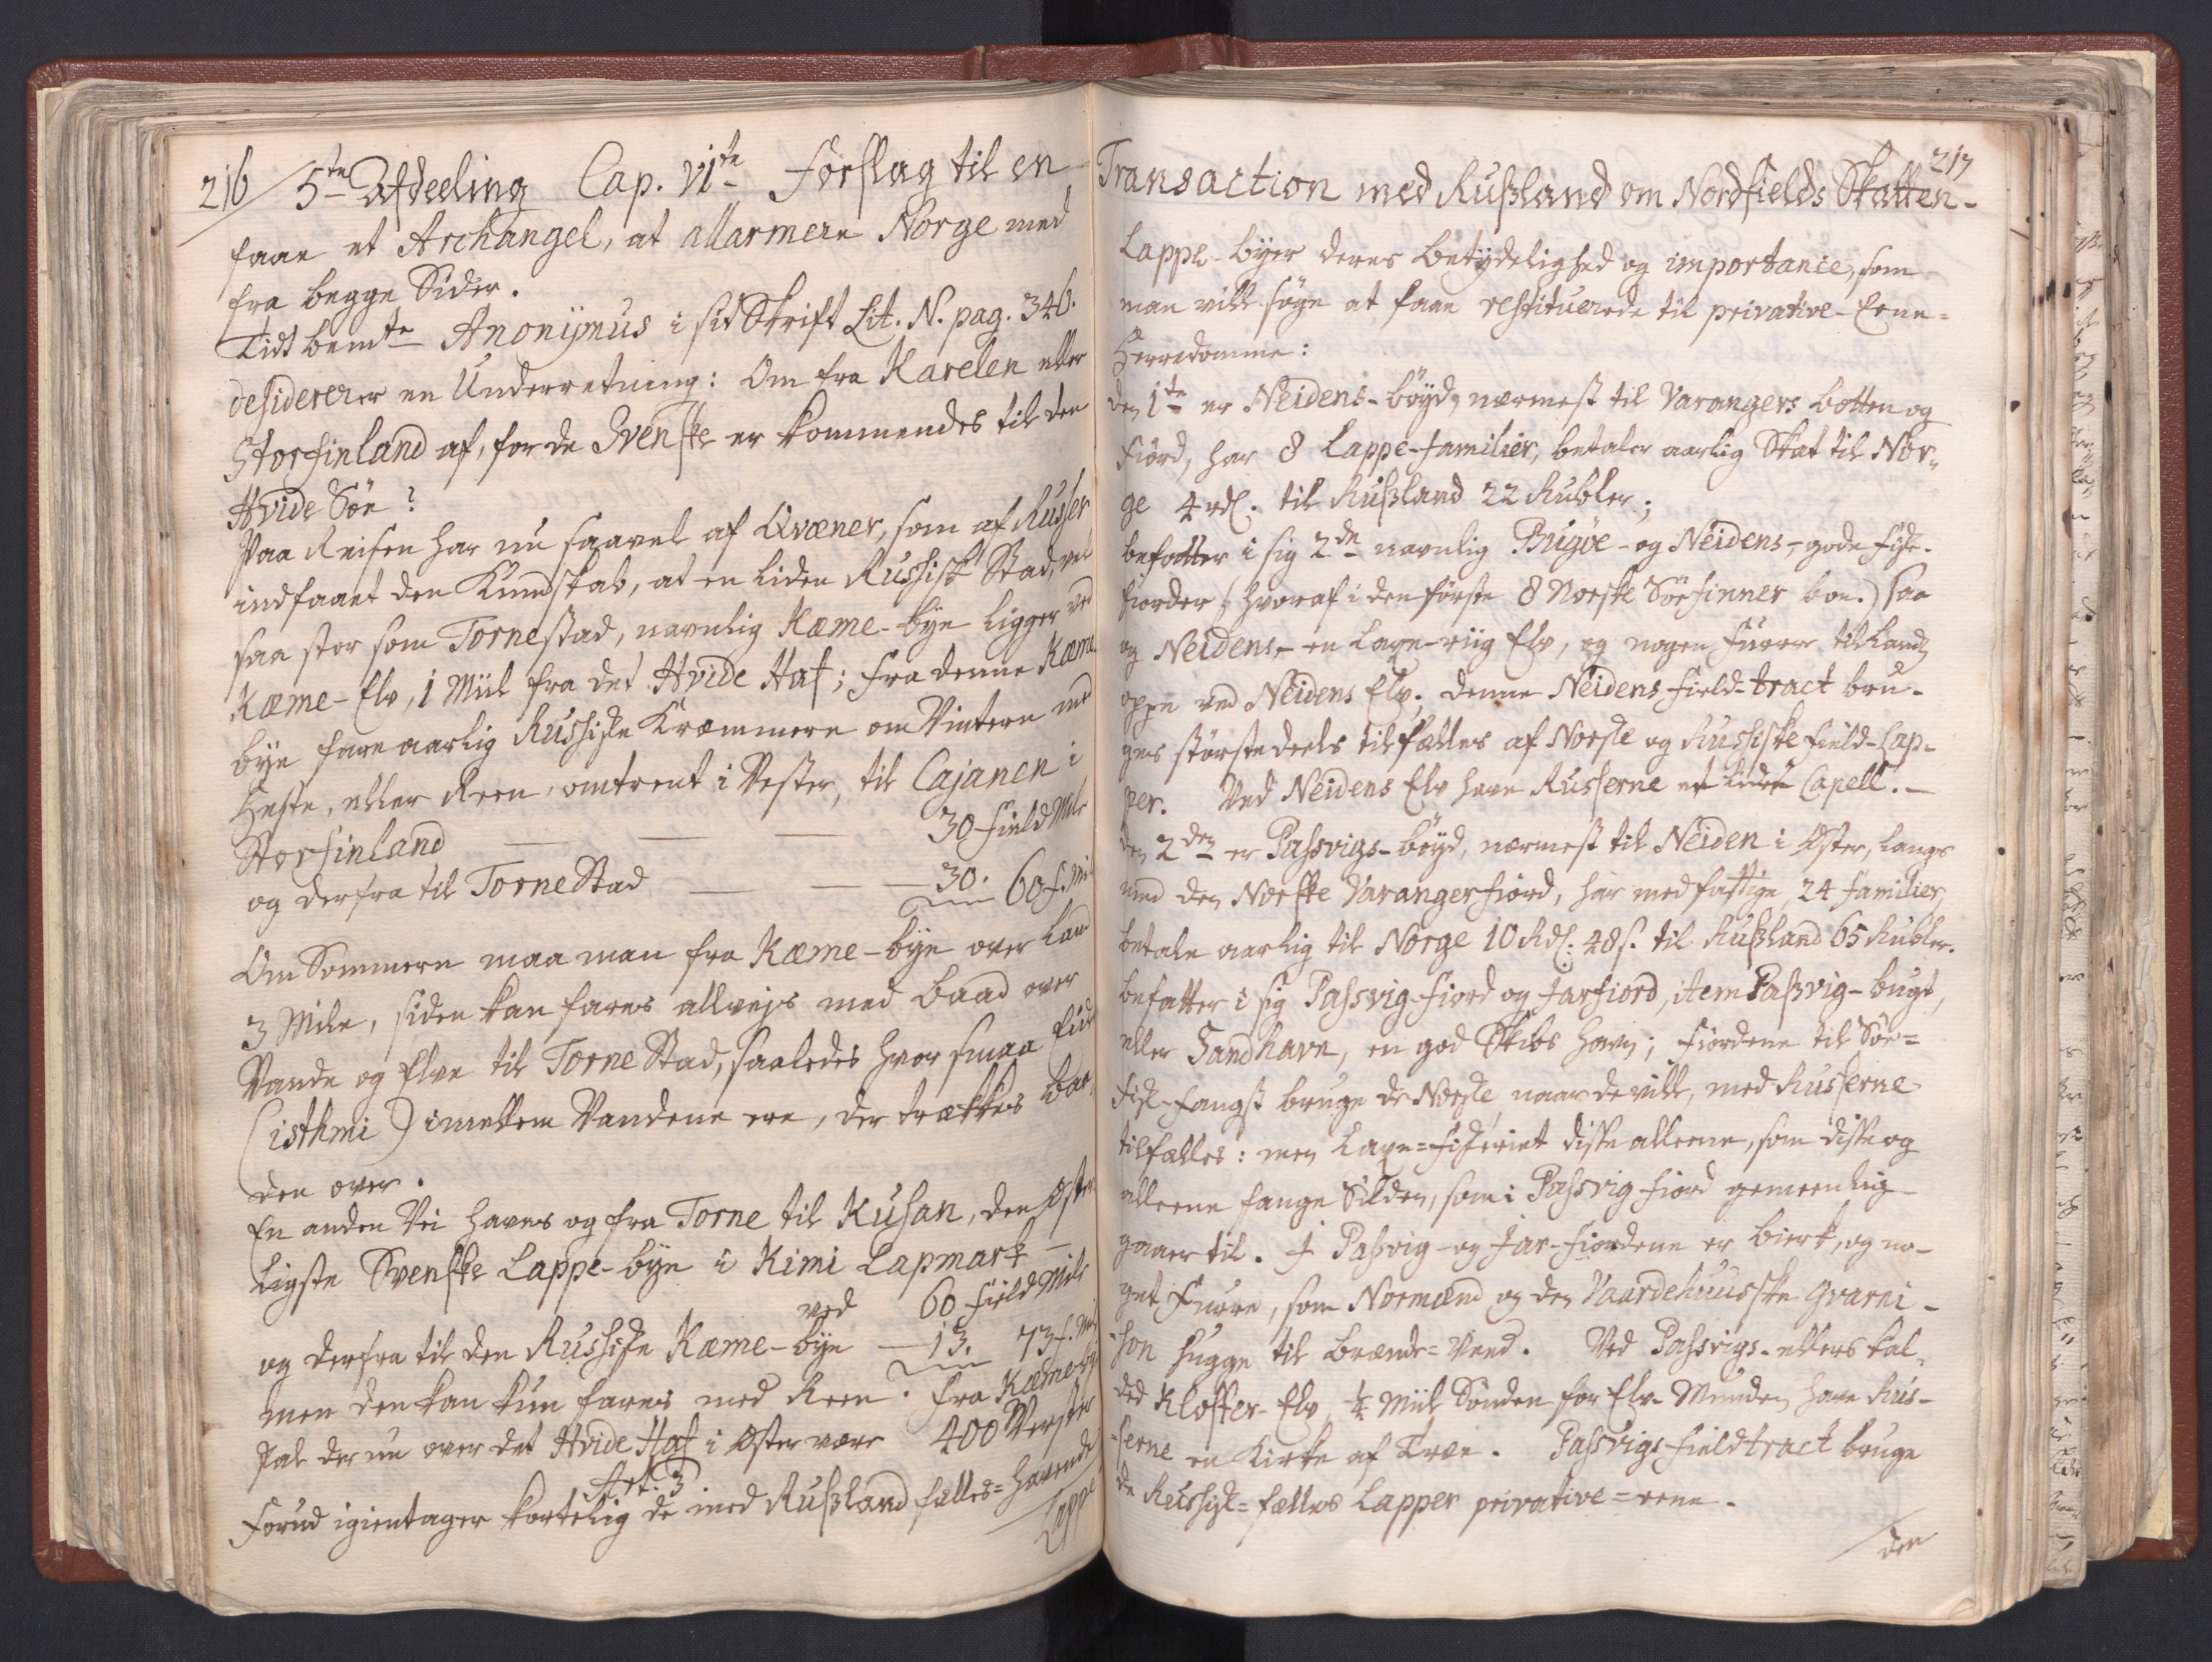 216 5te Afdeeling Cap. VIte Forslag til en
faae et Archangel, at allarmere Norge med
fra begge Sider.
Tidt bemte Anonÿmus i sit Skrift Lit. N. pag. 346.
desiderer en Underretning: Om fra Karelen eller
Storfinland af, for de Svenske er kommendes til den
Hvide Søe?
Paa Reisen har nu saavel af Qvæner, som af Russer
indfaaet den Kundskab, at en liden Russisk Stad, vel
saa stor som Tornestad, navnlig Kæme-bye ligger ved
Kæme-Elv, 1 Miil fra det Hvide Haf; Fra denne Kæme
bye fare aarlig Russiske Kræmmere om Vintern med
Heste, eller Reen, omtrent i Vester, til Cajanen i
Storfinland — — — 30 field Mile
og derfra til Torne Stad — — — 30. 60 f. Mil
Om Sommern maa man fra Kæme-bye over Land
3 Mile, siden kan fares allvejs med Baad over
Vande og Elve til Torne Stad, saaledes hvor smaa Eide
(isthmi) imellem Vandene ere, der trækkes Baa
den over.
En anden Vei haves og fra Torne til Kusan, den Øster
ligste Svenske Lappe-bye i Kimi Lapmark —
ved 60 field Mile
og derfra til den Russiske Kæme-bye — 13. 73 f. Mil
men den kan kun fares med Reen. Fra Kæmebye
skal der nu over det Hvide Haf i Øster være 400 Verster
Art. 3
Forud igientager kortelig de med Rußland fælles-havende
Lappe
217
Transaction med Rußland om Nordfields Skatten-
Lappe-byer deres betydelighed og importance, som
man vill søge at faae restituerede til privative-Eene-
Herredomme:
den 1te er Neidens-bøyd, nærmest til Varangers botten og
Fiord, har 8 Lappe-familier, betaler aarlig Skat til Nor-
ge 4 rdl. til Rußland 22 Rubler;
befatter i sig 2de navnlig Bugøe- og Neidens-, gode Fiske-
fiorder (hvoraf i den første 8 Norske Søefinner boe.) saa
og Neidens- en Laxe-riig Elv, og nogen Furre til Lands
oppe ved Neidens Elv; denne Neidens field-tract bru-
ges størstedeels tilfælles af Norske og Russiske Field-Lap-
per. Ved Neidens Elv have Russerne et lidet Capell. —
den 2den er Passvigs-bøyd, nærmest til Neiden i Øster, langs
med den Norske Varangerfiord, har med fattige, 24 familier,
betale aarlig til Norge 10 Rdl: 48 s. til Rußland 65 Rubler.
befatter i sig Passvig-fiord og Jarfiord, item Paßvig-bugt,
eller Sandhavn, en god Skibs Havn; Fiordene til Søe-
fisk-fangst bruge de Norske, naar de vill, med Russerne
tilfælles: men Laxe-fiskeriet disse alleene, som disse og
alleene fange Silden, som i Passvig fiord gemeenlig
gaaer til. I Pasvig- og Jar-fiordene er bierk, og no-
get Furre, som Normænd og den Vaardehuusske Gvarni-
son hugge til brænde-Veed. Ved Passvigs- ellers kal-
ded Kloster-Elv, ¼ Miil Sønden for Elv-Munden have Rus-
serne en Kirke af Træe. Passvigs field tract bruge
de Russisk-fælles Lapper privative-eene.
den